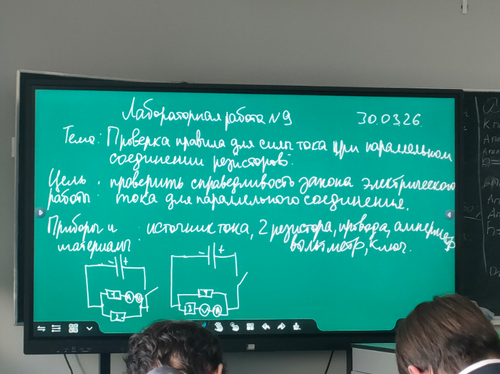 Лабораторная работа №9 30.03.26
Тема: Проверка правила для силы тока при параллельном
соединении резисторов.
Цель работы: проверить справедливость закона электрического
тока для параллельного соединение.
Приборы и материалы: источник тока, 2 резистора, провода, амперметр,
вольтметр, ключ.
- +
- +